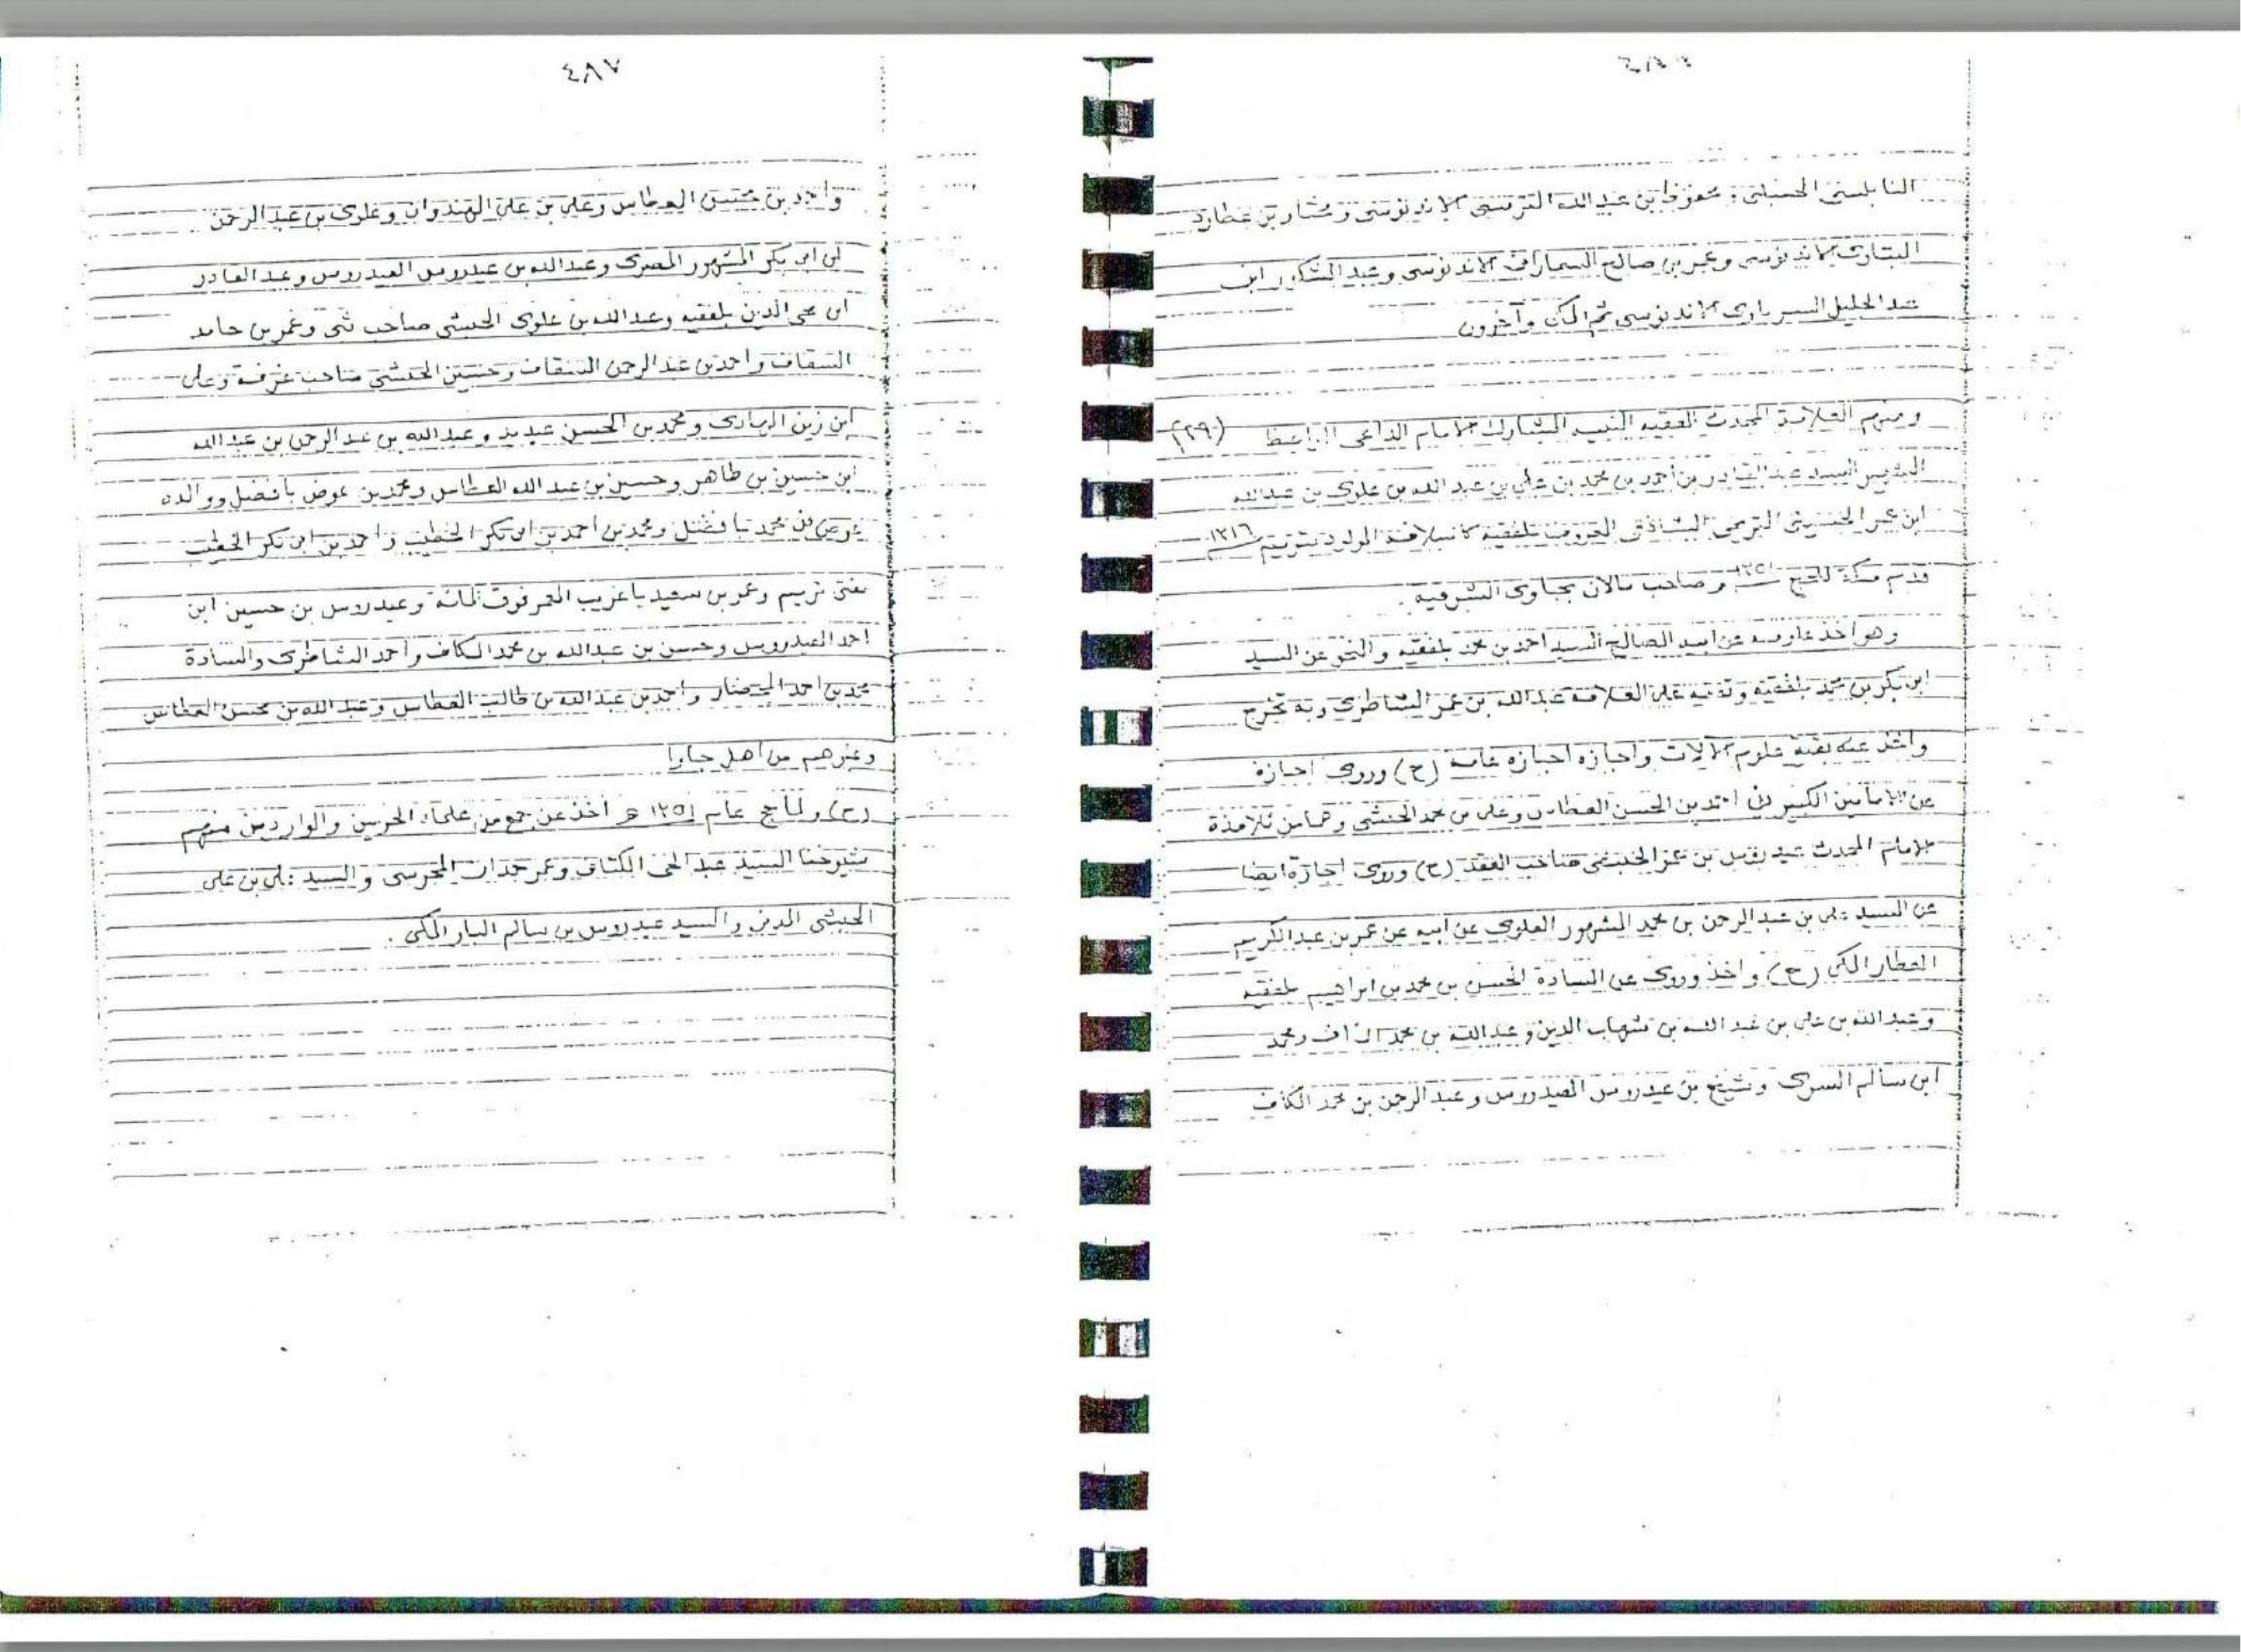 النابلسي الحنبلي ومحفوظ بن عبد الله الترمسي الاندنوسي ومختار بن عطارد
البتاوى الاندنوسي وعمر بن صالح السماراني الاندنوسي وعبد الشكور ابن
عبد الجليل السرباوى الاندنوسي ثم المكى وآخرون
ومنهم العلامة المحدث الفقيه النبيه المشارك الامام الداعى الواعظ (٢٩٠)
الشهير السيد عبد القادر بن أحمد بن محمد بن علي بن عبد الله بن علوى بن عبد الله
ابن عمر الحسيني التريمي الشافعي المعروف بلفقيه كاسلافه المولود بتريم ١٣١٦
قدم مكة للحج ١٣٥١ وصاحب مالان بجاوى الشرقية .
وهو اخذ علومه عن ابيه الصالح السيد احمد بن محمد بلفقيه والنحو عن السيد
ابى بكر بن محمد بلفقيه وتفقه على العلامة عبد الله بن عمر الشاطرى وبه تخرج
واخذ عنه بقية علوم الآلات واجازه اجازه عامة (ح) وروى اجازة
عن الامامين الكبيرين احمد بن الحسن العطاس وعلى بن محمد الحبشي وهما من تلامذة
الامام المحدث عيدروس بن عمر الحبشي صاحب العقد (ح) وروى اجازة ايضا
عن السيد على بن عبد الرحمن بن محمد المشهور العلوى عن ابيه عن عمر بن عبد الكريم
العطار المكى (ح) واخذ وروى عن السادة الحسن بن محمد بن ابراهيم بلفقيه
وعبد الله بن على بن عبد الله بن شهاب الدين وعبد الله بن محمد السقاف ومحمد
ابن سالم السرى وشيخ بن عيدروس العيدروس وعبد الرحمن بن محمد الكاف
٤٨٧
واحمد بن محسن العطاس وعلى بن على الهندوان وعلوى بن عبد الرحمن
ابن ابى بكر المشهور المصرى وعبد الله بن عيدروس العيدروس وعبد القادر
ابن محى الدين بلفقيه وعبد الله بن علوى الحبشى صاحب ثبى وعمر بن حامد
السقاف واحمد بن عبد الرحمن السقاف وحسين الحبشى صاحب غرفة وعلى
ابن زين الهادى ومحمد بن الحسن عيديد وعبد الله بن عبد الرحمن بن عبد الله
ابن حسين بن طاهر وحسين بن عبد الله العطاس ومحمد بن عوض بافضل ووالده
عوض بن محمد بافضل ومحمد بن أحمد بن ابى بكر الخطيب واحمد بن ابى بكر الخطيب
مفتى تريم وعمر بن سعيد باغريب المعمر فوق المائة وعيدروس بن حسين ابن
احمد العيدروس وحسن بن عبد الله بن محمد الكاف وأحمد الشاطرى والسادة
محمد بن احمد المحضار واحمد بن عبد الله بن طالب العطاس وعبد الله بن محسن العطاس
وغيرهم من أهل جاوا
(ح) ولما حج عام ١٣٥١ هـ أخذ عن جمع من علماء الحرمين والواردين منهم
شيوخنا السيد عبد الحى الكتاني وعمر حمدان المحرسى والسيد على بن على
الحبشى المدنى والسيد عيدروس بن سالم البار المكى .